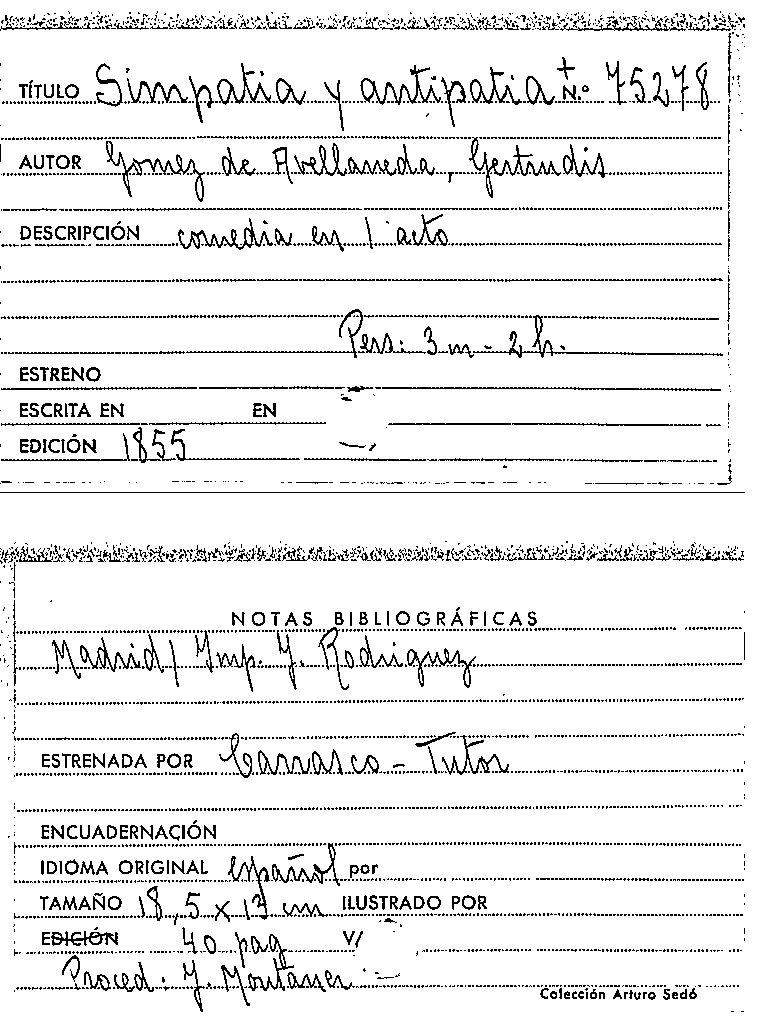 TÍTULO Simpatia y antipatia + N.º 75278
AUTOR Gomez de Avellaneda, Gertrudis
DESCRIPCIÓN comedia en 1 acto
Pers: 3 m - 2 h.
ESTRENO
ESCRITA EN EN
EDICIÓN 1855
NOTAS BIBLIOGRÁFICAS
Madrid / Imp. J. Rodriguez
ESTRENADA POR Carrasco - Tutor
ENCUADERNACIÓN
IDIOMA ORIGINAL español por
TAMAÑO 18,5 x 13 cm ILUSTRADO POR
EDICIÓN 40 pag V/
Proced: J. Montaner
Colección Arturo Sedó